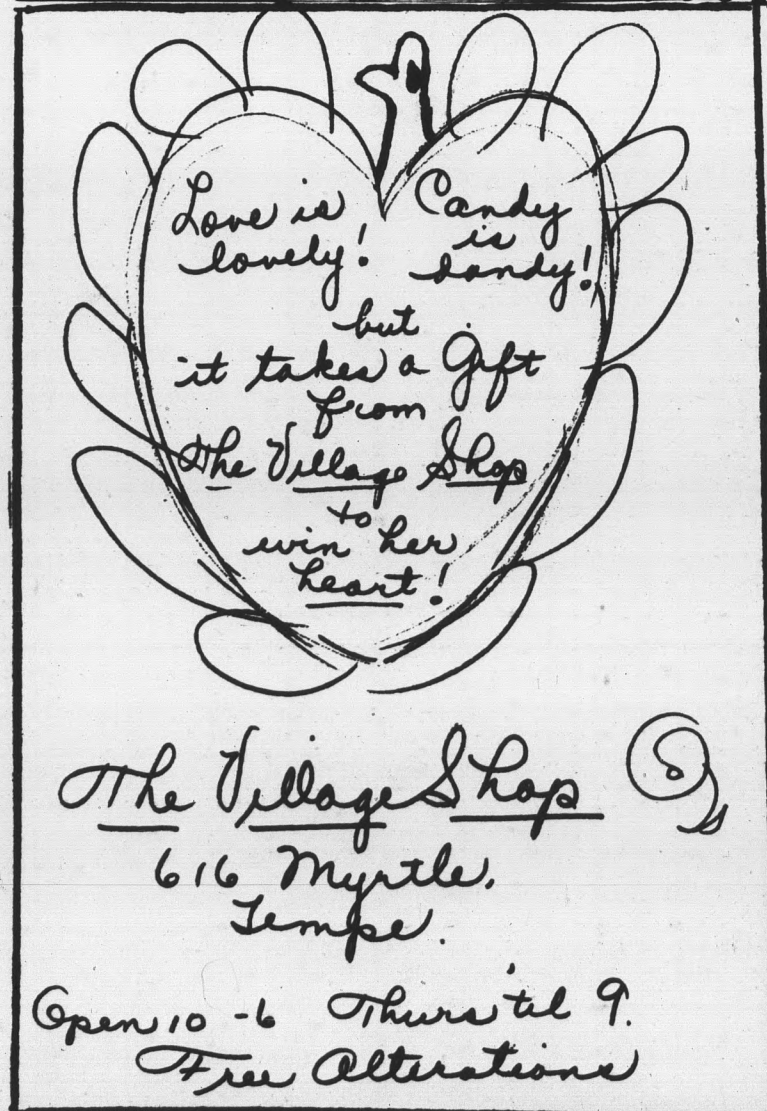 Love is
lovely!
Candy
is
dandy!
but
it takes a Gift
from
The Village Shop
to
win her
heart!
The Village Shop
616 Myrtle,
Tempe.
Open 10 - 6 Thurs 'til 9.
Free Alterations